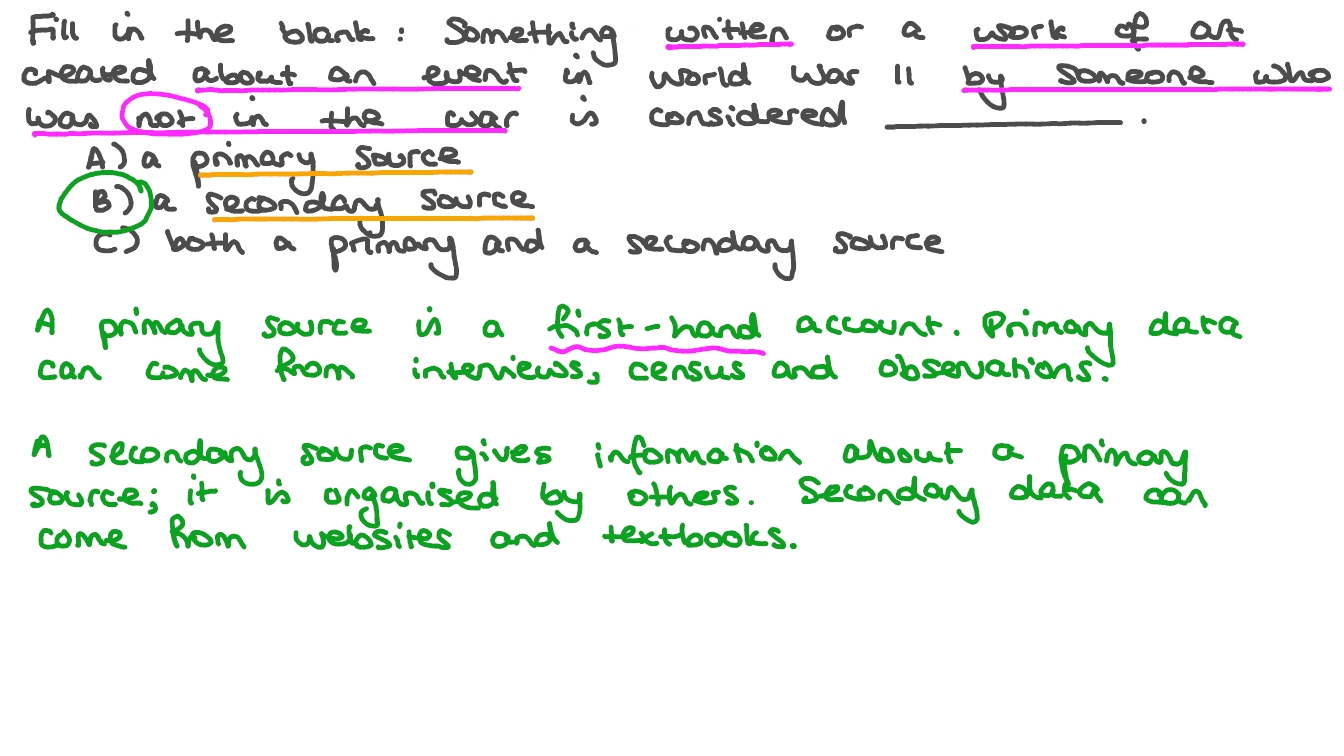 Fill in the blank: Something written or a work of art
created about an event in world war II by someone who
was not in the war is considered __________.
A) a primary source
B) a secondary source
C) both a primary and a secondary source
A primary source is a first-hand account. Primary data
can come from interviews, census and observations.
A secondary source gives information about a primary
source; it is organised by others. Secondary data can
come from websites and textbooks.